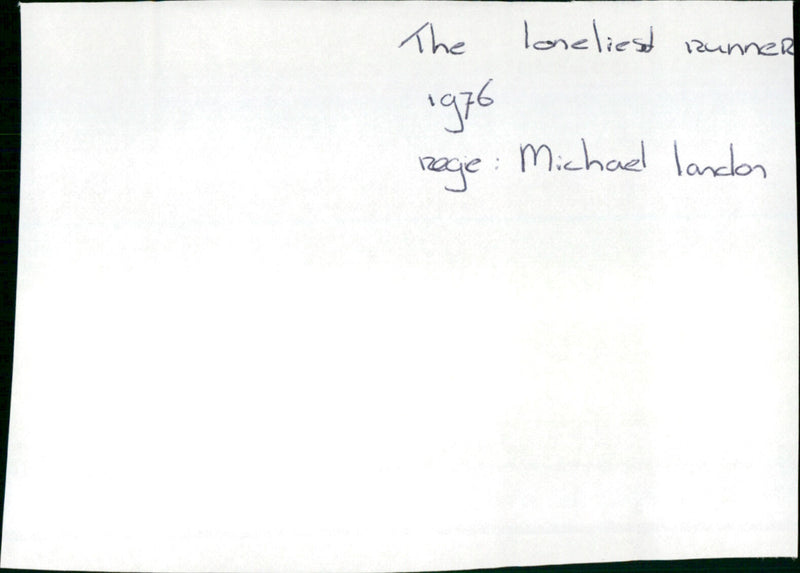 The loneliest runner
1976
regie: Michael landon